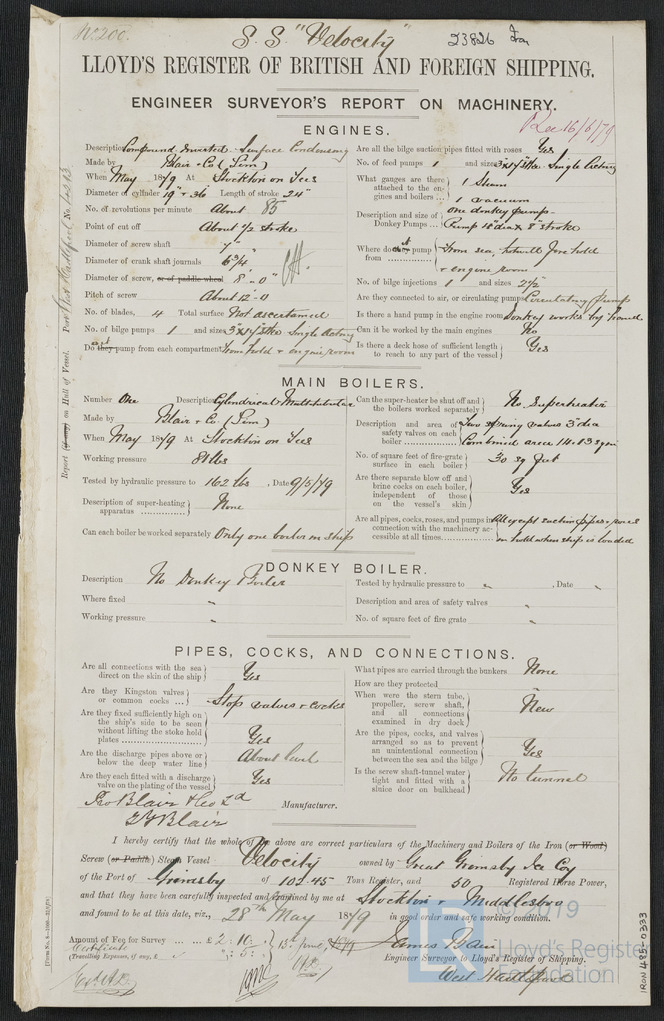 No. 200.
S.S. "Velocity" 23826 Iron
LLOYD'S REGISTER OF BRITISH AND FOREIGN SHIPPING.
ENGINEER SURVEYOR'S REPORT ON MACHINERY.
Rec 16/6/79
ENGINES.
Description Compound Inverted - Surface Condensing
Made by Blair & Co (Lim)
When May 1879 At Stockton on Tees
Diameter of cylinder 19" & 36 Length of stroke 24"
No. of revolutions per minute About 85
Point of cut off About 1/2 stroke
Diameter of screw shaft 7"
Diameter of crank shaft journals 6 3/4
Diameter of screw, or of paddle wheel 8'-0"
Pitch of screw About 12'-0
No. of blades, 4 Total surface Not ascertained
No. of bilge pumps 1 and sizes Single Acting
Do they pump from each compartment From hold & engine room
Are all the bilge suction pipes fitted with roses Yes
No. of feed pumps 1 and sizes Single Acting
What gauges are there attached to the engines and boilers ... 1 Steam
1 vacuum
Description and size of Donkey Pumps ... One donkey pump -
Pump 4" dia & 8" stroke
Where do they pump from From sea, hotwell fore hold
& engine room
No. of bilge injections 1 and sizes 2 1/2
Are they connected to air, or circulating pump Circulating Pump
Is there a hand pump in the engine room Donkey works by hand
Can it be worked by the main engines No
Is there a deck hose of sufficient length to reach to any part of the vessel Yes
Report (if any) on Hull of Vessel. Port West Hartlepool No.
MAIN BOILERS.
Number One Description Cylindrical Multitubular
Made by Blair & Co. (Lim)
When May 1879 At Stockton on Tees
Working pressure 81 lbs
Tested by hydraulic pressure to 162 lbs , Date 9/5/79
Description of super-heating apparatus None
Can each boiler be worked separately Only one boiler in ship
Can the super-heater be shut off and the boilers worked separately No Superheater
Description and area of safety valves on each boiler Two spring valves 3" dia
Combined area 14.13 sq in
No. of square feet of fire-grate surface in each boiler 30 sq feet
Are there separate blow off and brine cocks on each boiler, independent of those on the vessel's skin Yes
Are all pipes, cocks, roses, and pumps in connection with the machinery accessible at all times All except suction pipes & roses
in hold when ship is loaded
DONKEY BOILER.
Description No Donkey Boiler
Where fixed "
Working pressure "
Tested by hydraulic pressure to " , Date "
Description and area of safety valves "
No. of square feet of fire grate "
PIPES, COCKS, AND CONNECTIONS.
Are all connections with the sea direct on the skin of the ship Yes
Are they Kingston valves or common cocks ... Stop valves & Cocks
Are they fixed sufficiently high on the ship's side to be seen without lifting the stoke hold plates Yes
Are the discharge pipes above or below the deep water line About level
Are they each fitted with a discharge valve on the plating of the vessel Yes
What pipes are carried through the bunkers None
How are they protected "
When were the stern tube, propeller, screw shaft, and all connections examined in dry dock New
Are the pipes, cocks, and valves arranged so as to prevent an unintentional connection between the sea and the bilge Yes
Is the screw shaft-tunnel water tight and fitted with a sluice door on bulkhead No tunnel
For Blair & Co Ld Manufacturer.
Blair
I hereby certify that the whole of the above are correct particulars of the Machinery and Boilers of the Iron (or Wood)
Screw (or Paddle) Steam Vessel Velocity owned by Great Grimsby Ice Coy
of the Port of Grimsby of 102.45 Tons Register, and 50 Registered Horse Power,
and that they have been carefully inspected and examined by me at Stockton & Middlesbro
and found to be at this date, viz., 28th May 1879 in good order and safe working condition.
Amount of Fee for Survey ... ... £2 : 10 : 13th June,
Certificate
(Travelling Expenses, if any, £
James Bain
Engineer Surveyor to Lloyd's Register of Shipping.
West Hartlepool
© 2019
LR
Lloyd's Register
Foundation
IRON 485-0333